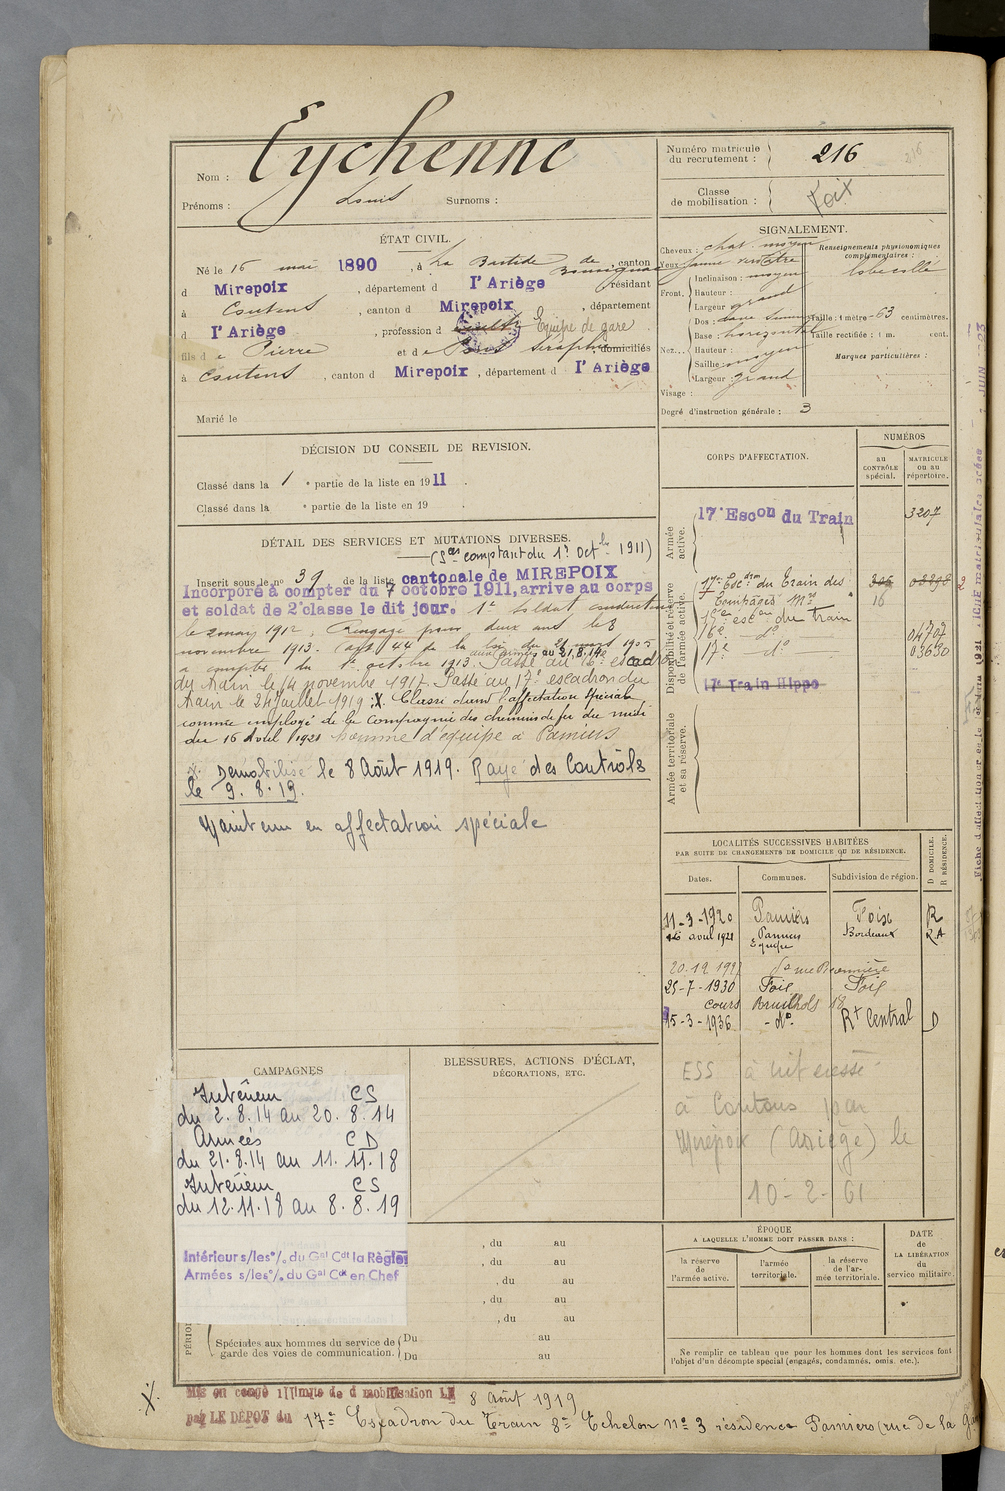 Nom : Eychenne
Prénoms : Louis Surnoms :
Numéro matricule
du recrutement : 216
216
Classe
de mobilisation : Foix
ÉTAT CIVIL.
Né le 16 mai 1890, à La Bastide de Bousignac, canton
d Mirepoix, département d l'Ariège résidant
à Coutens, canton d Mirepoix, département
d l'Ariège, profession d Equipe de gare
fils de Pierre et de Séraphine, domiciliés
à Coutens, canton d Mirepoix, département d l'Ariège
Marié le
SIGNALEMENT.
Cheveux : chat. moyen
Yeux jaune verdâtre
Front, Inclinaison : moyen
Hauteur :
Largeur grand
Nez... Dos :
Base : horizontal
Hauteur :
Saillie moyen
Largeur : grand
Visage :
Renseignements physionomiques
complémentaires :
lobe collé
Taille : 1 mètre 63 centimètres.
Taille rectifiée : 1 m. cent.
Marques particulières :
Degré d'instruction générale : 3
DÉCISION DU CONSEIL DE REVISION.
Classé dans la 1 e partie de la liste en 1911.
Classé dans la e partie de la liste en 19 .
DÉTAIL DES SERVICES ET MUTATIONS DIVERSES.
(Ses comptant du 1er Octbre 1911)
Inscrit sous le no 39 de la liste cantonale de MIREPOIX
Incorporé à compter du 7 octobre 1911, arrive au corps
et soldat de 2e classe le dit jour. 1e Soldat conducteur
le 2 may 1912, Rengagé pour deux ans le 8
novembre 1913. (art 44 de la loi du 21 mars 1905
aux armées au 21.8.14
à compter du 1er octobre 1913. Passé au 16e escadron
du train le 14 novembre 1917. Passé au 17e escadron du
train le 24 juillet 1919 ; X. Classé dans l'affectation spéciale
comme employé de la Compagnie des chemins de fer du midi
du 16 Avril 1921 homme d'équipe à Pamiers
X. Démobilisé le 8 Août 1919. Rayé des Contrôls
le 9.8.19.
Maintenu en affectation spéciale
CORPS D'AFFECTATION.
NUMÉROS
au
CONTRÔLE
spécial.
MATRICULE
ou au
répertoire.
Armée
active.
17e Escon du Train 3207
Disponibilité et réserve
de l'armée active.
17e Escdron du Train des
Equipages Mres 16
15e escon du train
16e do 04707
17e do 03630
17e Train Hippo
Armée territoriale
et sa réserve.
LOCALITÉS SUCCESSIVES HABITÉES
PAR SUITE DE CHANGEMENTS DE DOMICILE OU DE RÉSIDENCE.
Dates. Communes. Subdivision de région. D DOMICILE. R RÉSIDENCE.
11-3-1920 Pamiers Foix R
16 avril 1921 Pamiers Bordeaux R.A
Equipe
25-7-1930 Foix Foix
cours Bruilhols 18
15-3-1936 - do - Rt Central D
ESS à intéressé
à Coutens par
Mirepoix (Ariège) le
10-2-61
CAMPAGNES
Intérieur CS
du 2.8.14 au 20.8.14
Armées CD
du 21.8.14 au 11.11.18
Intérieur CS
du 12.11.18 au 8.8.19
Intérieur s/les o/. du Gal Cdt la Région
Armées s/les o/. du Gal Cdt en Chef
BLESSURES, ACTIONS D'ÉCLAT,
DÉCORATIONS, ETC.
, du au
, du au
, du au
, du au
, du au
Spéciales aux hommes du service de
garde des voies de communication.
Du au
Du au
ÉPOQUE
A LAQUELLE L'HOMME DOIT PASSER DANS :
la réserve
de
l'armée active.
l'armée
territoriale.
la réserve
de l'ar-
mée territoriale.
DATE
de
LA LIBÉRATION
du
service militaire.
Ne remplir ce tableau que pour les hommes dont les services font
l'objet d'un décompte spécial (engagés, condamnés, omis, etc.).
X. Mis en congé illimité de démobilisation LE 8 Août 1919
par LE DÉPOT du 17e Escadron du Train 8e Echelon no 3 résidence Pamiers (rue de la